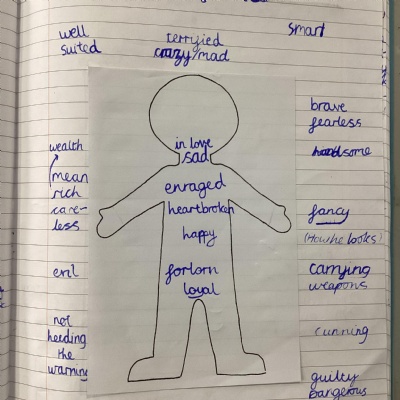 well
suited
terryied
crazy/mad
smart
wealth
mean
rich
care-
less
evil
not
heeding
the
warning
in love
sad
enraged
heartbroken
happy
forlorn
loyal
brave
fearless
handsome
fancy
(How he looks)
carrying
weapons
cunning
guilty
Dangerous